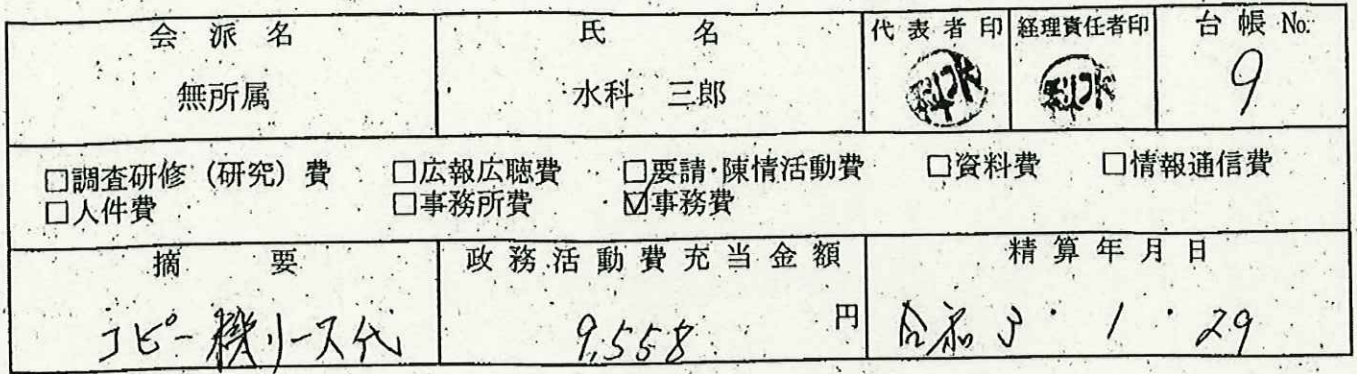 会派名 氏名 代表者印 経理責任者印 台帳 No.
無所属 水科 三郎 水科 水科 9
□調査研修（研究）費 □広報広聴費 □要請・陳情活動費 □資料費 □情報通信費
□人件費 □事務所費 ☑事務費
摘要 政務活動費充当金額 精算年月日
コピー機リース代 9,558 円 令和 3・1・29